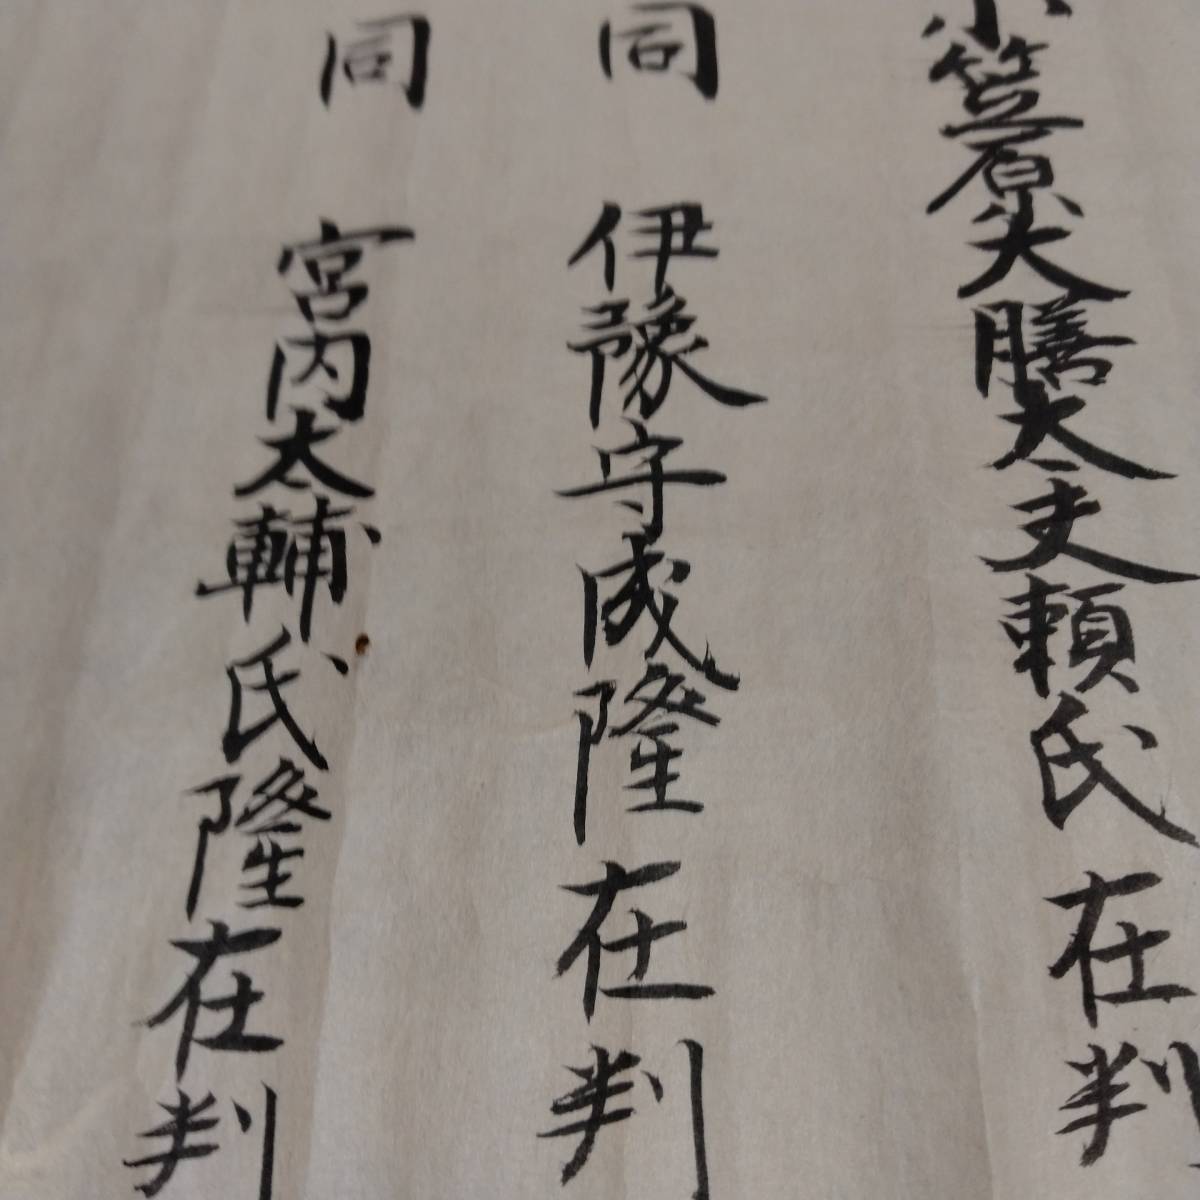 小笠原大膳太丈頼氏在判
同 伊豫守成隆在判
同 宮内太輔氏隆在判